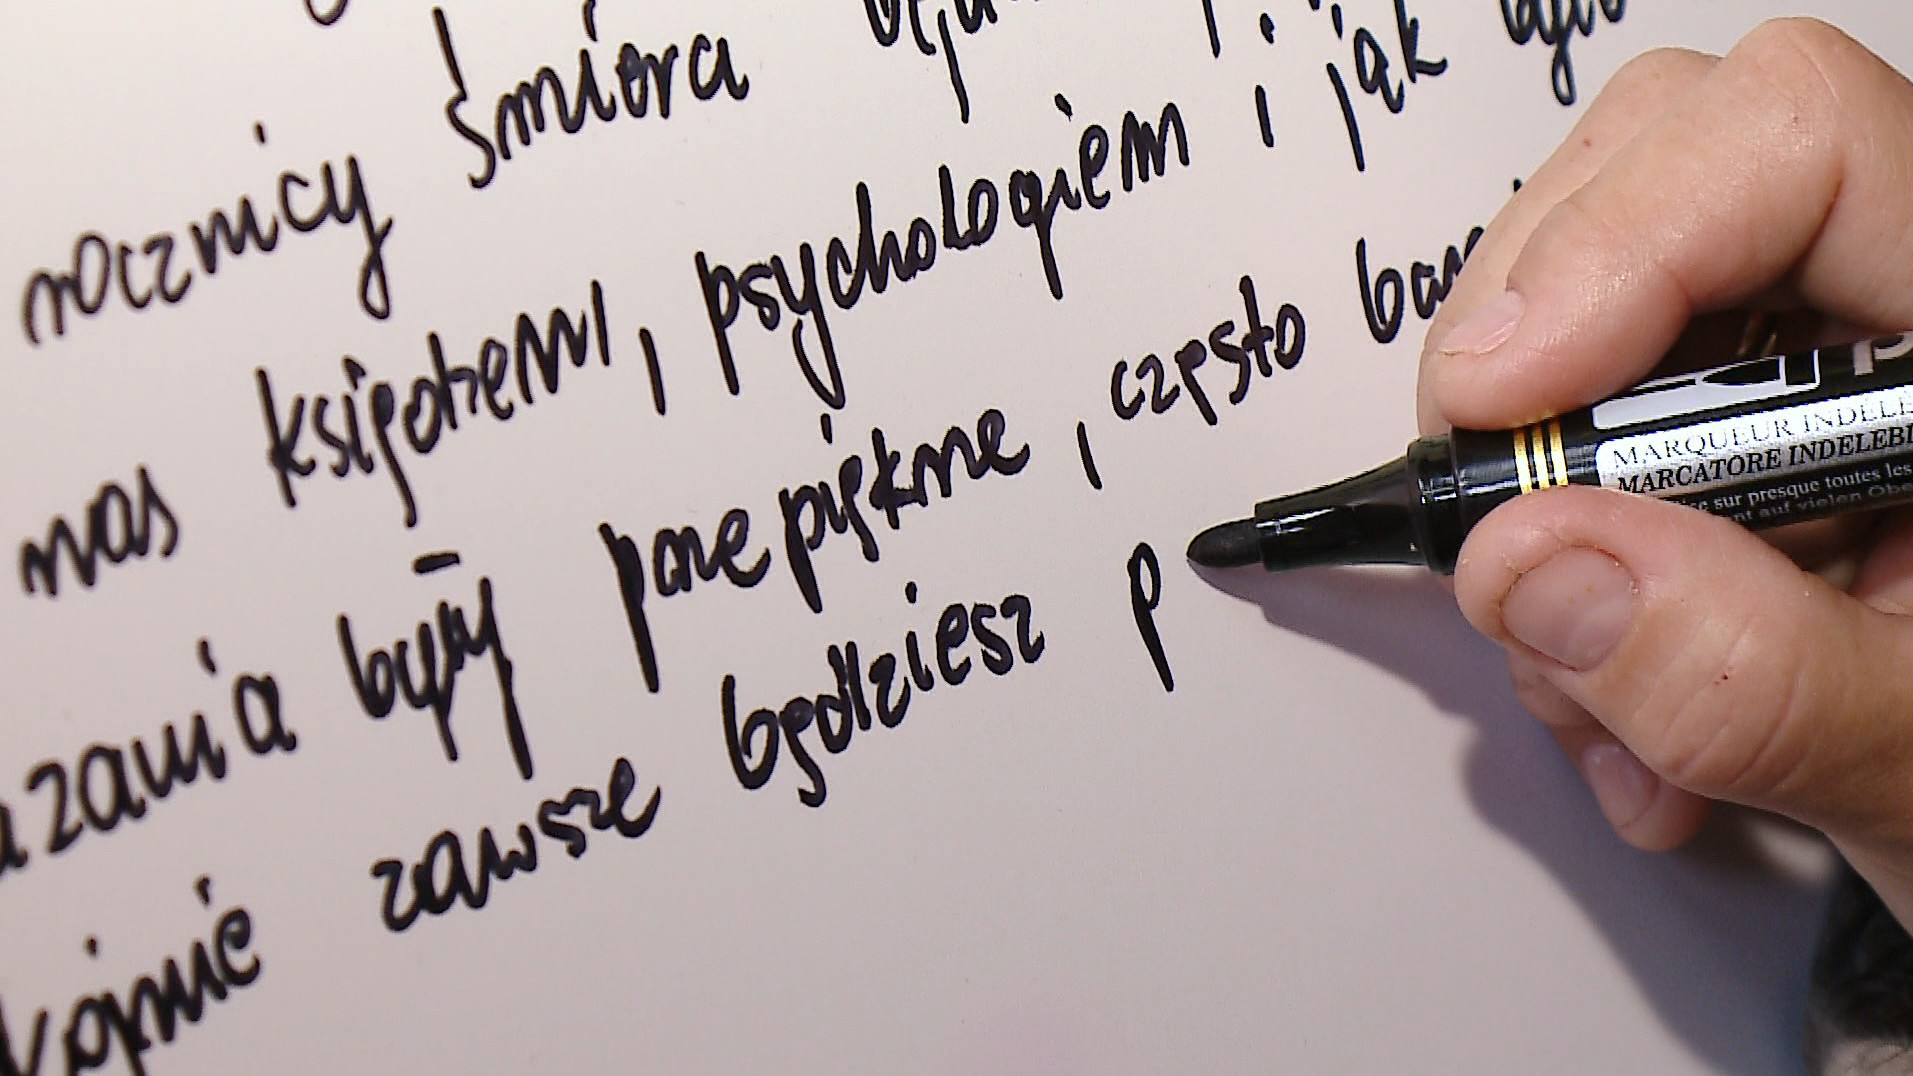 rocznicy śmiera
nas księdzem, psychologiem i jak
kazania były prze piękne, często bar
zawsze będziesz p
MARQUEUR INDELE
MARCATORE INDELEBI
sur presque toutes les
nt auf vielen Obe